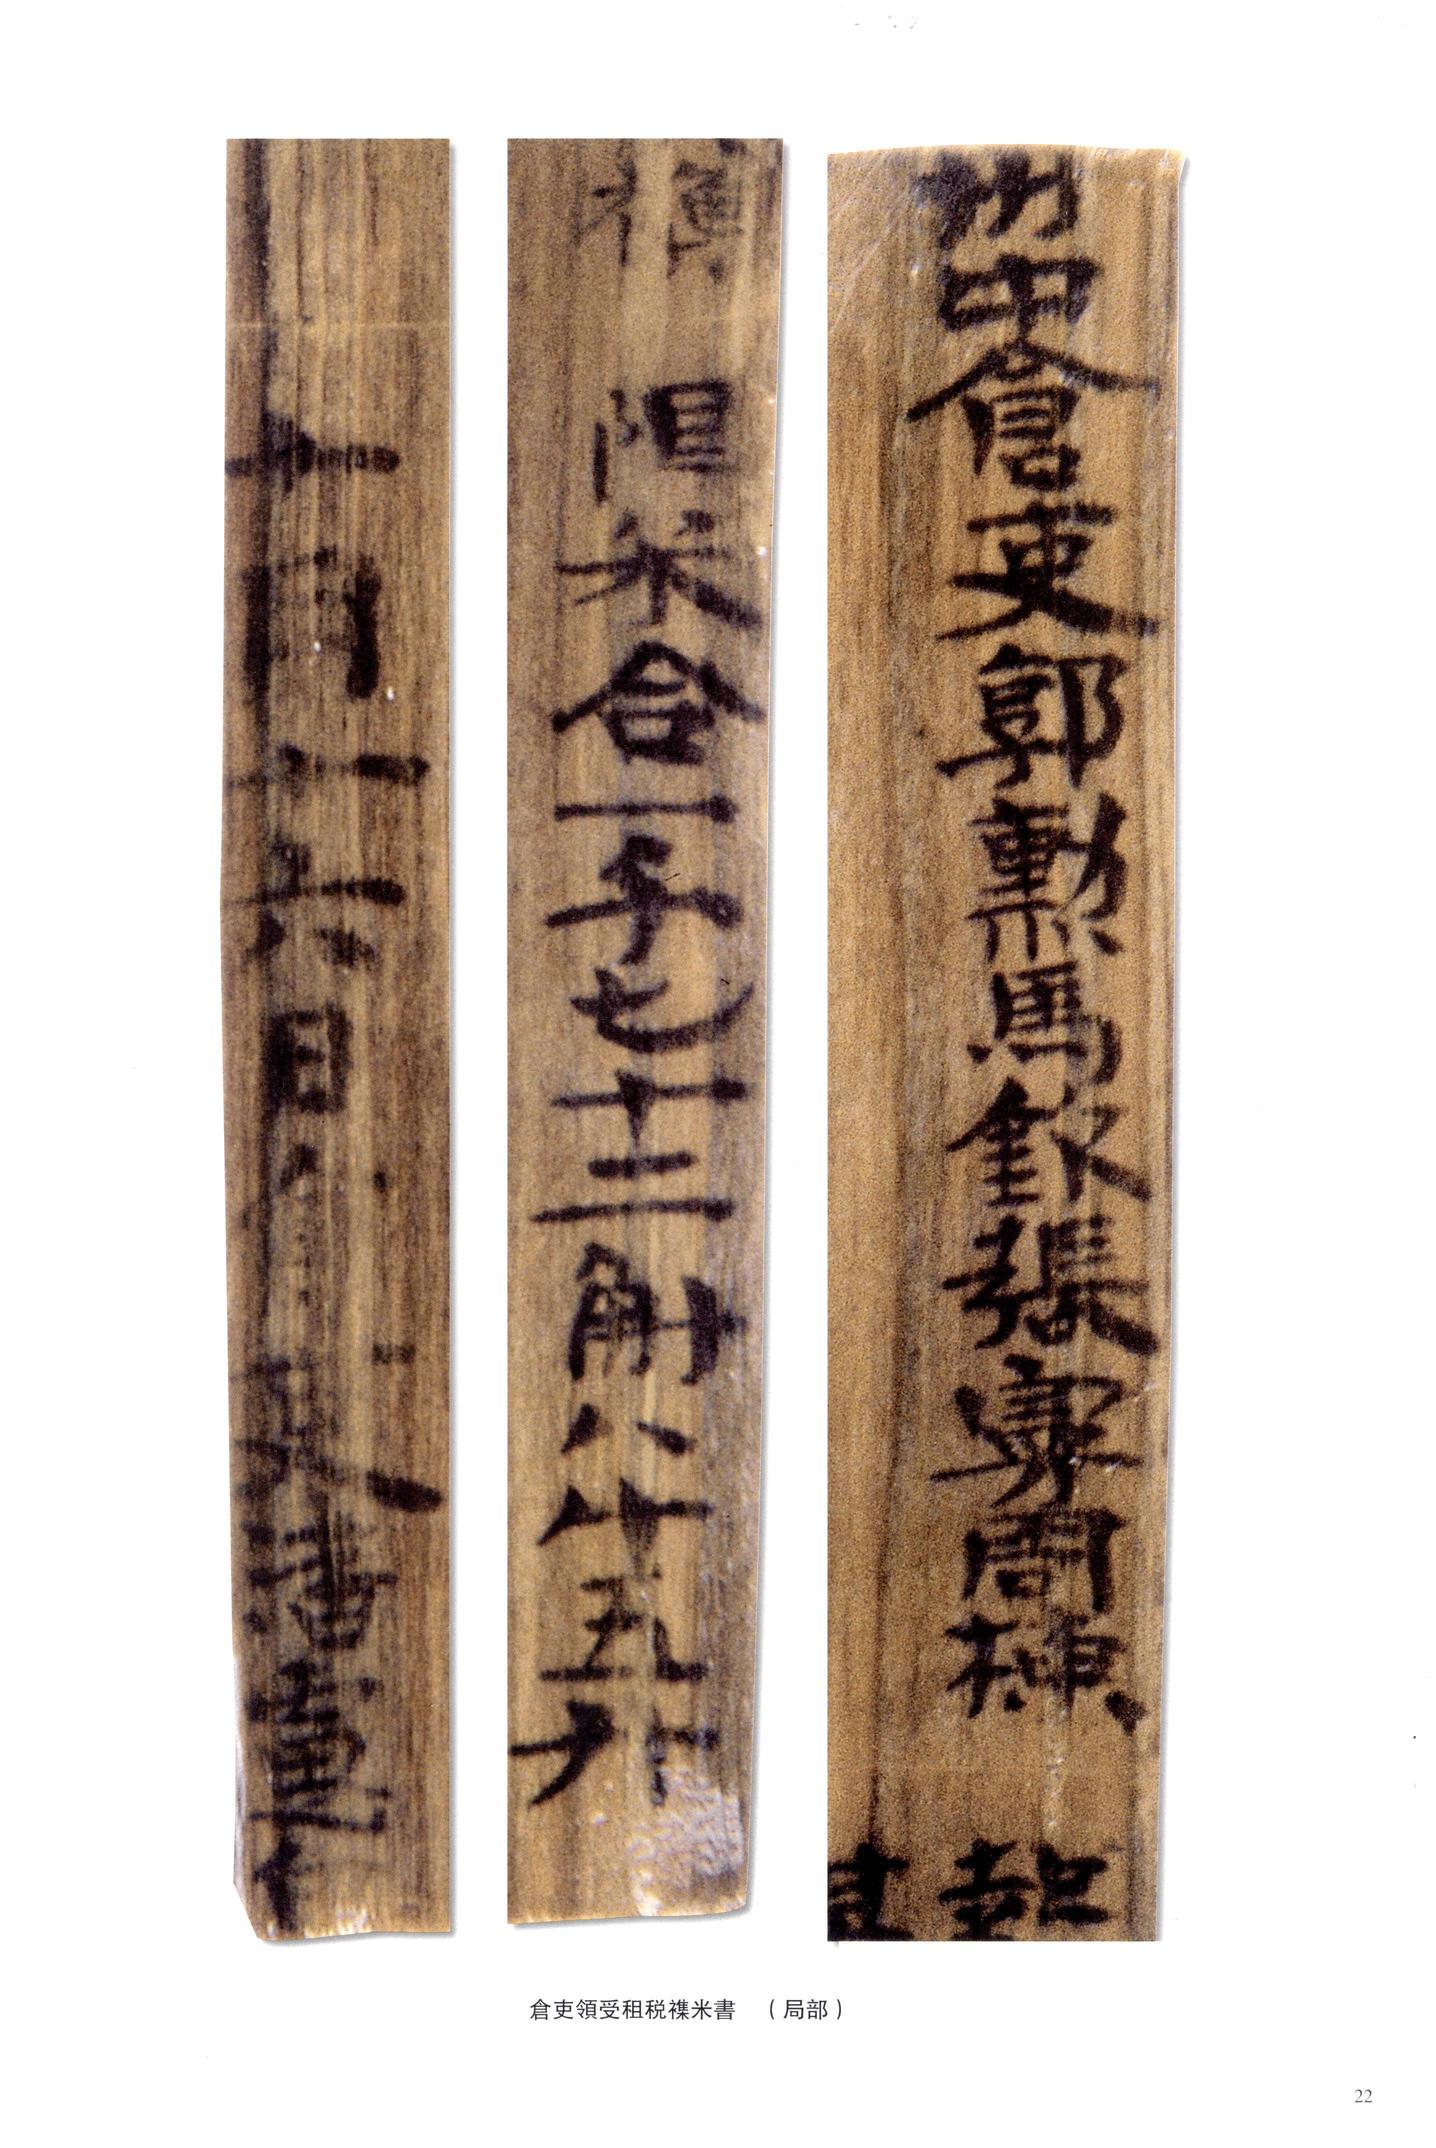 州中倉吏郭勳馬欽張曼周棟 起
限米合一千七十三斛八斗五升
月廿六日 吏潘慮
倉吏領受租税襍米書 （局部）
22